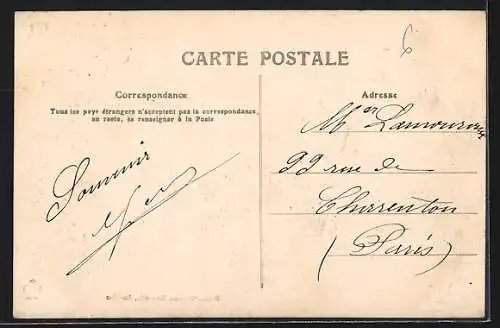 CARTE POSTALE
Correspondance
Tous les pays étrangers n'acceptent pas la correspondance
au recto, se renseigner à la Poste
Adresse
Souvenir
Mr Lamoureux
99 rue de
Charenton
(Paris)